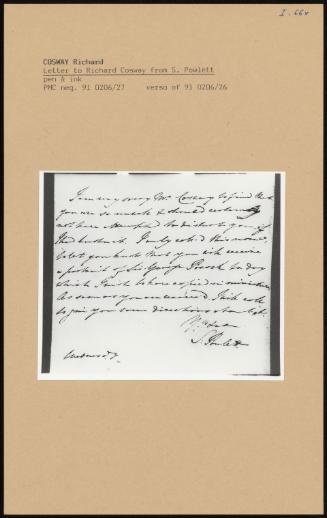 I. 66v
COSWAY Richard
Letter to Richard Cosway from S. Powlett
pen & ink
PMC neg. 91 0206/27 verso of 91 0206/26
I am very sorry Mr. Cosway to find that
you are so unwell & should certainly
not have attempted to disturb you if
I had
I only called this
to let you know that you will receive
a portrait of Sir George to day
which I wish to have copied in miniature
As soon as you are I will call
to give you some directions about it.
S. Powlett
Wednesdy.